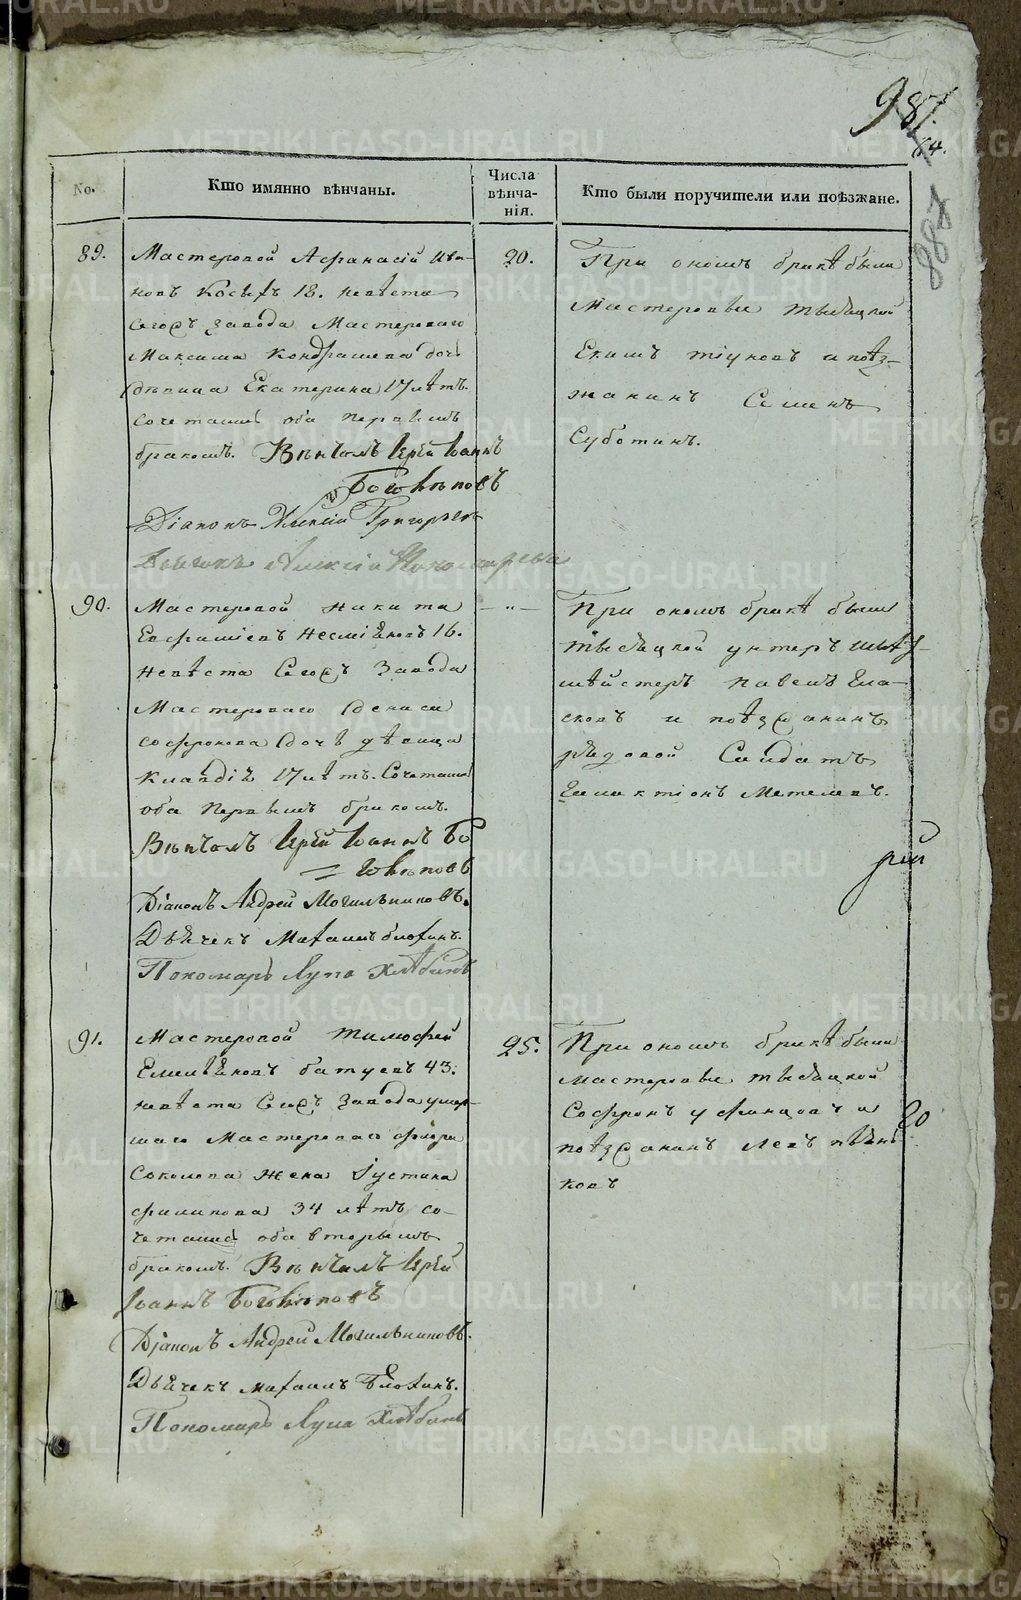 987.
64.
887
No.
Кто имянно вѣнчаны.
Числа
вѣнча-
нія.
Кто были поручители или поѣзжане.
89.
Мастеровой Афанасій Ива-
новъ Косыхъ 18. невѣста
сегожъ завода Мастероваго
Максима Кондрашева дочь
дѣвица Екатерина 17 лѣтъ.
сочетаны оба первымъ
бракомъ. Вѣнчалъ Іерей Іоаннъ
Боголѣповъ
Діаконъ Алексій Григорьевъ
Дьячекъ Алексій Пономаревъ
20.
При ономъ бракѣ были
Мастеровые тысяцкой
Екимъ тіуновъ и поѣз-
жанинъ Семенъ
Субботинъ.
90.
Мастеровой Никита
Евфимiевъ 16.
Невѣста Сегожъ Завода
Мастероваго Дениса
Софронова дочь дѣвица
Клавдія 17 лѣтъ. Сочетаны
оба Первымъ бракомъ.
Вѣнчалъ Іерей Іоаннъ Бо
= голѣповъ
Діаконъ Андрей Могильниковъ.
Дьячекъ Михаилъ Блохинъ.
Пономарь Лупа Хлѣбинъ
— " —
При ономъ бракѣ были
тысяцкой унтеръ
Павелъ
и поѣзжанинъ
рядовой Салдатъ
Метелевъ.
рей
91.
Мастеровой Тимофей
Емельяновъ батуевъ 43.
невѣста Сегожъ Завода умер-
шаго Мастероваго
Соколова жена Іустина
филипова 34 лѣтъ со-
четаны оба вторымъ
бракомъ. Вѣнчалъ Іерей
Іоаннъ Боголѣповъ
Діаконъ Андрей Могильниковъ.
Дьячекъ Михаилъ Блохинъ.
Пономарь Лупа Хлѣбинъ
25.
При ономъ бракѣ были
мастеровые тысяцкой
Софронъ уфинцовъ и
поѣзжанинъ Левъ пьян
ковъ
20
METRIKI.GASO-URAL.RU